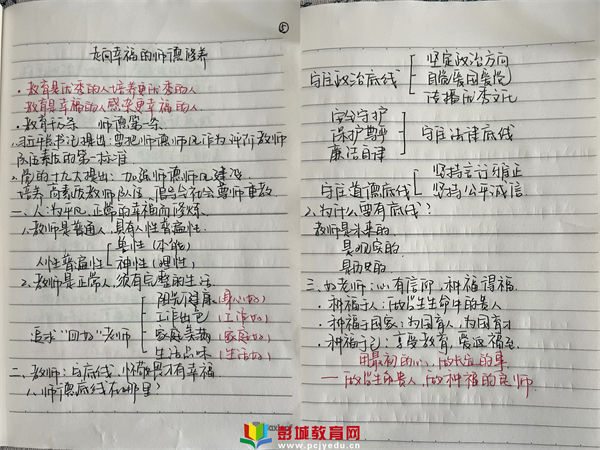 ⑤
走向幸福的师德修养
·教育是优秀的人培养更优秀的人
教育是幸福的人感染更幸福的人.
·教育千万条 师德第一条
1.习近平总书记提出:要把师德师风作为评价教师
队伍素质的第一标准
2.党的十九大提出:加强师德师风建设
培养高素质教师队伍,倡导全社会尊师重教.
一、人:为平凡、正常的幸福而修炼.
1.教师是普通人,具有人性普遍性.
人性普遍性 兽性(本能)
神性(理性)
2.教师是正常人,须有完整的生活
追求"四好"老师
阳光健康(身心好)
工作出色(工作好)
家庭美满(家庭好)
生活品味(生活好)
二、教师:与底线、
才有幸福
1.师德底线在哪里?
守住政治底线
坚定政治方向
自觉爱国爱党
传播优秀文化
守住法律底线
保护尊严
廉洁自律
守住道德底线
坚持言行雅正
坚持公平诚信
2.为什么要有底线?
教师是未来的.
是现实的.
是历史的.
三、好老师:心有信仰,种福得福.
·种福于人:做学生生命中的贵人
·种福于国家:为国育人,为国育才
·种福于己:享受教育,
用最初的心,做长远的事
——做学生的贵人,做种福的良师.
彭城教育网
www.pcjyedu.cn